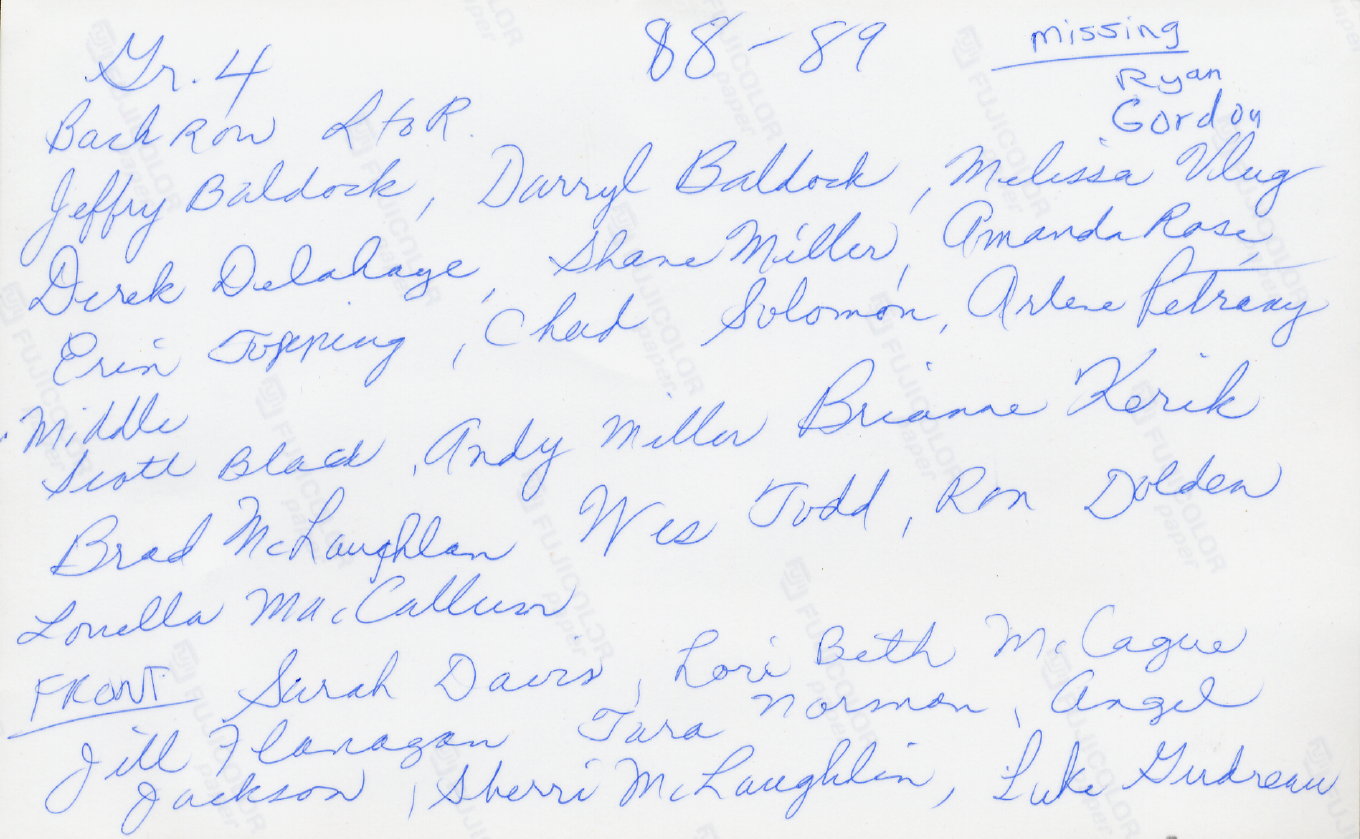 Gr. 4 88-89 missing
Ryan
Gordon
Back Row L to R.
Jeffry Baldock, Darryl Baldock, Melissa Vlug
Derek Delahaye, Shane Miller, Amanda Rose,
Erin Topping, Chad Solomon, Arlene Petrany
Middle
Scott Black, Andy Miller Brianne Kerik
Brad McLaughlan Wes Todd, Ron Dolden
Lonella MacCallum
FRONT Sarah Davis, Lori Beth McCague
Jill Flanagan Tara Norman, Angel
Jackson, Sherri McLaughlin, Luke Gudreau
FUJICOLOR
paper